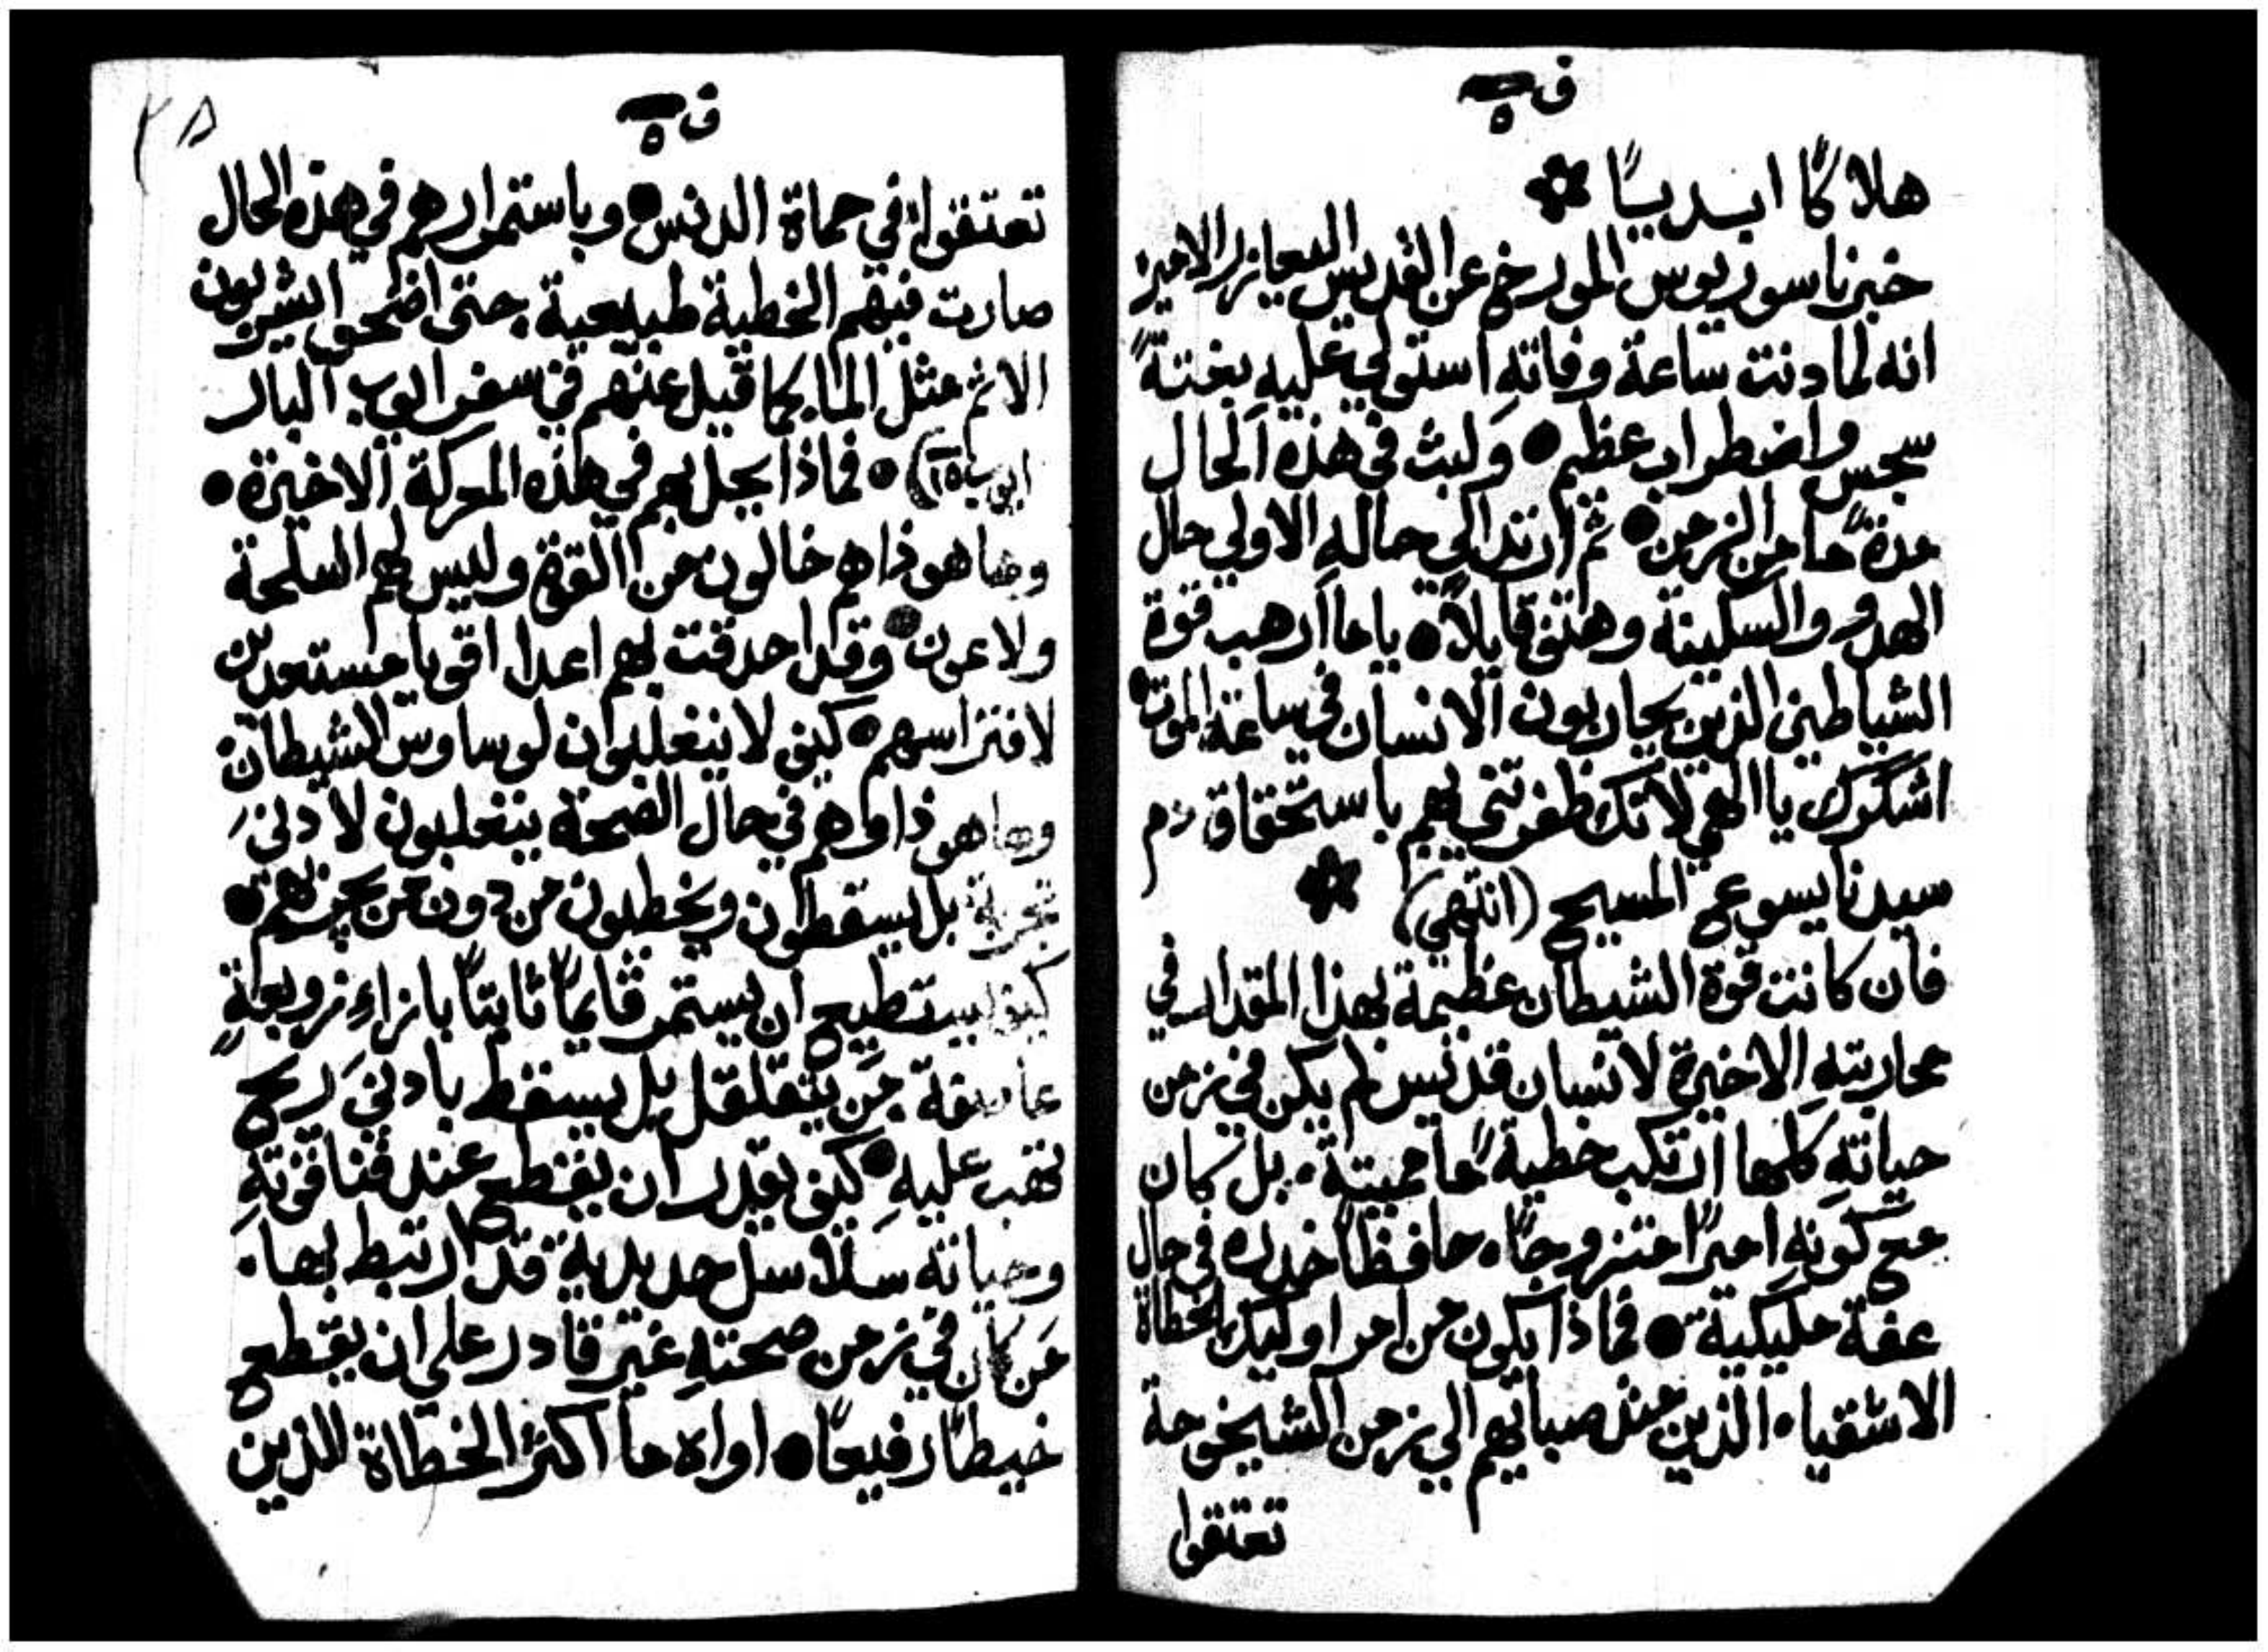 ف ٥
هلاكًا ابديًا
خبرنا سوريوس المورخ عن القديس اليعازر الامير
انه لما دنت ساعة وفاتهِ استولي عليهِ بغتةً
سجس واضطراب عظيم ● ولبث في هذه الحال
مدةً ما من الزمن ● ثم ارتد الي حالهِ الاولي حال
الهدو والسكينة وهتف قايلاً ● ياما ارهب قوة
الشياطين الذين يحاربون الانسان في ساعة الموت ●
اشكرك يا الهي لانك ظفرتني بهم باستحقاق دم
سيدنا يسوع المسيح (انتهي)
فان كانت قوة الشيطان عظيمة بهذا المقدار في
محاربتهِ الاخيرة لانسان قديس لم يكن في زمن
حياتهِ كلها ارتكب خطيةً ما مميتة • بل كان
مع كونهِ اميرًا متزوجًا • حافظًا خدره في حال
عفة مليكية ● فماذا يكون من امر اوليك الخطاة
الاشقياء الذين منذ صباهم الي زمن الشيخوخة
تعتقوا
ف ٥
٢٥
تعتقوا في حماة الدنس ● وباستمرارهم في هذه الحال
صارت فيهم الخطية طبيعية • حتي اضحوا يشربون
الاثم مثل الما • كما قيل عنهم في سفر ايوب البار
ايوب ١٥) ● فماذا يحل بهم في هذه المعركة الاخيرة ●
وها هوذا هم خالون من القوة وليس لهم اسلحة
ولا عون ● وقد احدقت بهم اعدا اقويا مستعدين
لافتراسهم ● كيف لا ينغلبوان لوساوس الشيطان
وها هو ذا هم في حال الصحة ينغلبون لادني
تجربة بل يسقطون ويخطيون من دون من يجربهم ●
كيف يستطيع ان يستمر قايمًا ثابتًا بازاءِ زوبعةٍ
عاصفة • مَن يتقلقل بل يسقط بادني ريح
تهب عليهِ ● كيف يقدر ان يقطع عند فنا قوتهِ
وحياته سلاسل حديدية قد ارتبط بها •
مَن كان في زمن صحتهِ غير قادر علي ان يقطع
خيطًا رفيعًا ● اواه ما اكثر الخطاة الذين